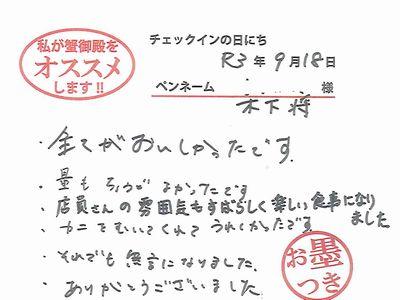 私が蟹御殿を
オススメ
します!!
チェックインの日にち
R3年9月18日
ペンネーム 木下将 様
・全てがおいしかったです。
・量もちょうどよかったです
・店員さんの雰囲気もすばらしく楽しい食事になり
ました
・カニをむいてくれてうれしかったです。
・それでも無言になりました。
・ありがとうございました。
お墨
つき